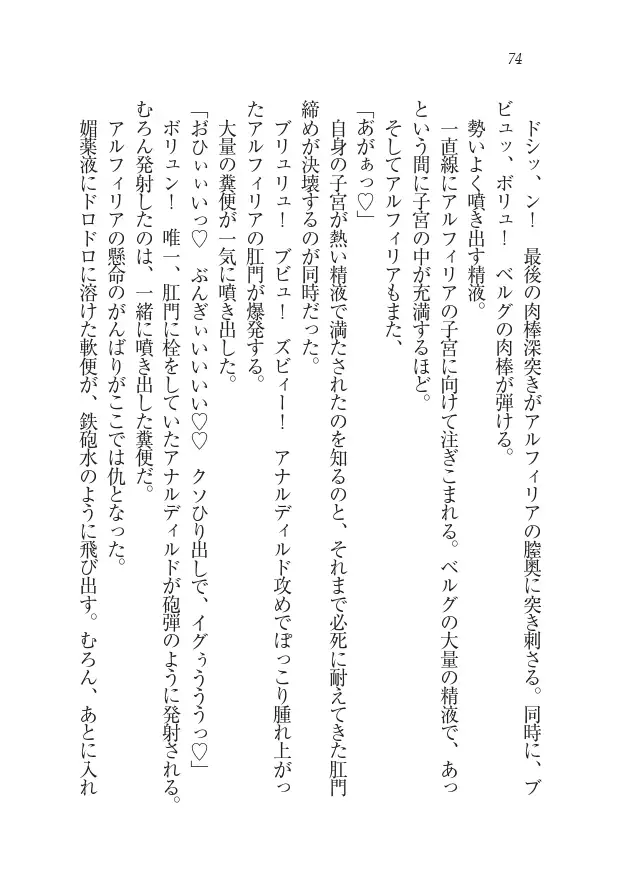 74
ドシッ、ン！　最後の肉棒深突きがアルフィリアの膣奥に突き刺さる。同時に、ブ
ビュッ、ボリュ！　ベルグの肉棒が弾ける。
勢いよく噴き出す精液。
一直線にアルフィリアの子宮に向けて注ぎこまれる。ベルグの大量の精液で、あっ
という間に子宮の中が充満するほど。
そしてアルフィリアもまた、
「あがぁっ♡」
自身の子宮が熱い精液で満たされたのを知るのと、それまで必死に耐えてきた肛門
締めが決壊するのが同時だった。
ブリュリュ！　ブビュ！　ズビィー！　アナルディルド攻めでぽっこり腫れ上がっ
たアルフィリアの肛門が爆発する。
大量の糞便が一気に噴き出した。
「おひぃぃいっ♡　ぶんぎぃいいいい♡♡　クソひり出しで、イグぅうううっ♡」
ボリュン！　唯一、肛門に栓をしていたアナルディルドが砲弾のように発射される。
むろん発射したのは、一緒に噴き出した糞便だ。
アルフィリアの懸命のがんばりがここでは仇となった。
媚薬液にドロドロに溶けた軟便が、鉄砲水のように飛び出す。むろん、あとに入れ